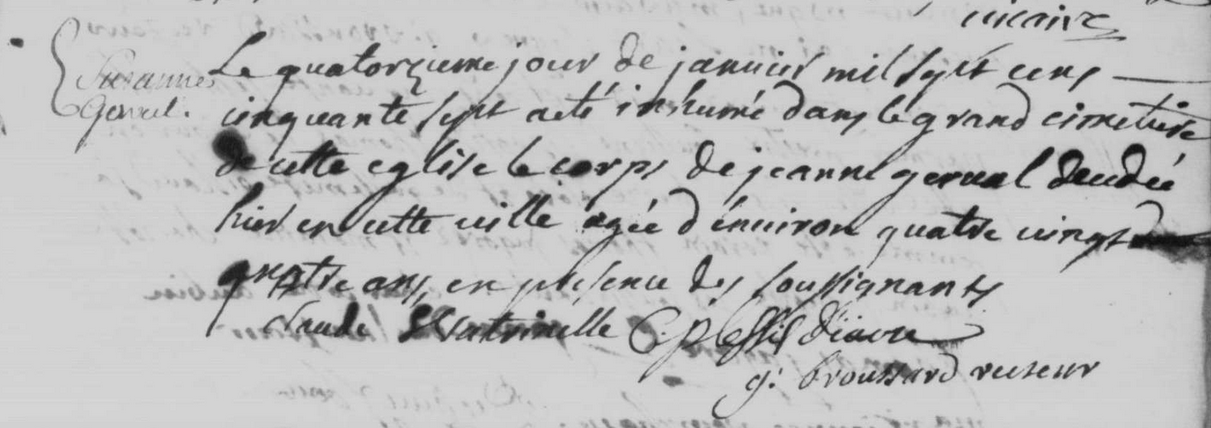 vicaire
Suzanne
Gerval.
Le quatorzieme jour de janvier mil sept cens
cinquante sept a eté inhumé dans le grand cimetiere
de cette eglise le corps de jeanne gerval decedée
hier en cette ville agée d'environ quatre vingt
quatre ans, en presence des soussignants
Claude C. Plessis diacre
g. broussard recteur